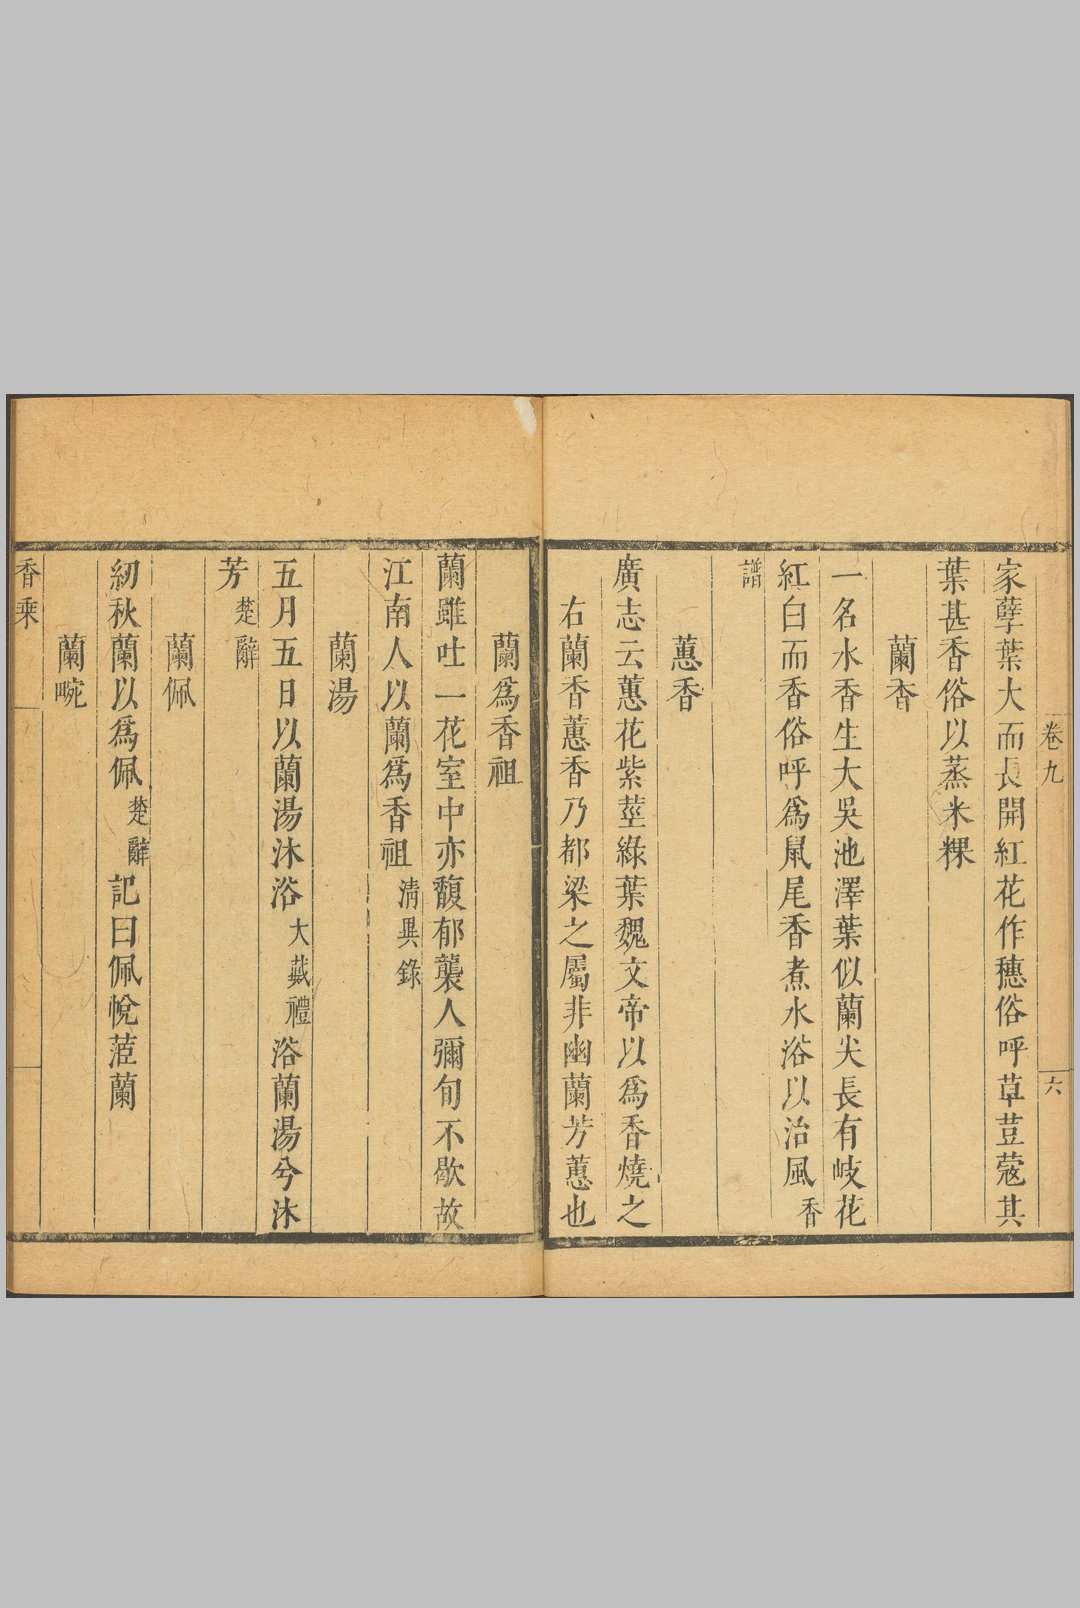 卷九
六
家孽葉大而長開紅花作穗俗呼草荳蔻其
葉甚香俗以蒸米粿
蘭香
一名水香生大吳池澤葉似蘭尖長有岐花
紅白而香俗呼爲鼠尾香煮水浴以治風香
譜
蕙香
廣志云蕙花紫莖綠葉魏文帝以爲香燒之
右蘭香蕙香乃都梁之屬非幽蘭芳蕙也
蘭爲香祖
蘭雖吐一花室中亦馥郁襲人彌旬不歇故
江南人以蘭爲香祖清異錄
蘭湯
五月五日以蘭湯沐浴大戴禮浴蘭湯兮沐
芳楚辭
蘭佩
紉秋蘭以爲佩楚辭記曰佩悅茝蘭
蘭畹
香乘